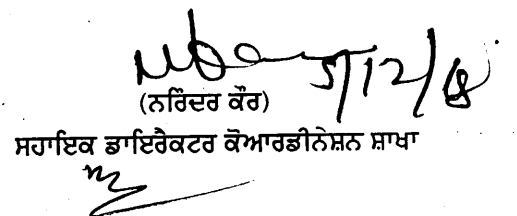 5/12/18
(ਨਰਿੰਦਰ ਕੌਰ)
ਸਹਾਇਕ ਡਾਇਰੈਕਟਰ ਕੋਆਰਡੀਨੇਸ਼ਨ ਸ਼ਾਖਾ